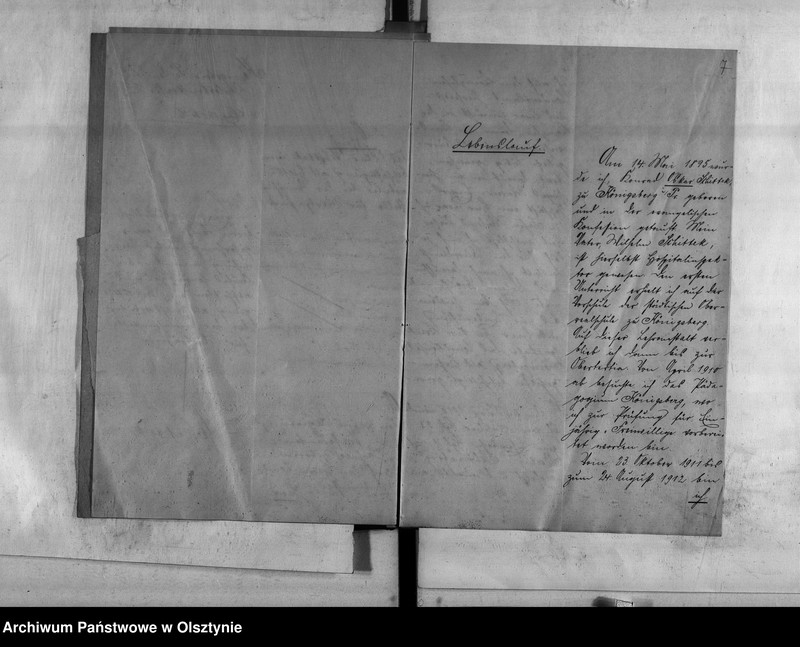 7
Lebenslauf.
Am 14. Mai 1895 wur-
de ich, Konrad Oskar Schittek,
zu Königsberg Pr geboren
und in der evangelischen
Konfession getauft. Mein
Vater, Wilhelm Schittek,
ist hierselbst Hospitalinspek-
tor gewesen. Den ersten
Unterricht erhielt ich auf der
Vorschule der städtischen Ober-
realschule zu Königsberg.
Auf dieser Lehranstalt ver-
blieb ich dann bis zur
Obertertia. Von April 1910
ab besuchte ich das Päda-
gogium Königsberg, wo
ich zur Prüfung für Ein-
jährig-Freiwillige vorberei-
tet worden bin
Vom 23. Oktober 1911 bis
zum 24. August 1912 bin
ich
Archiwum Państwowe w Olsztynie